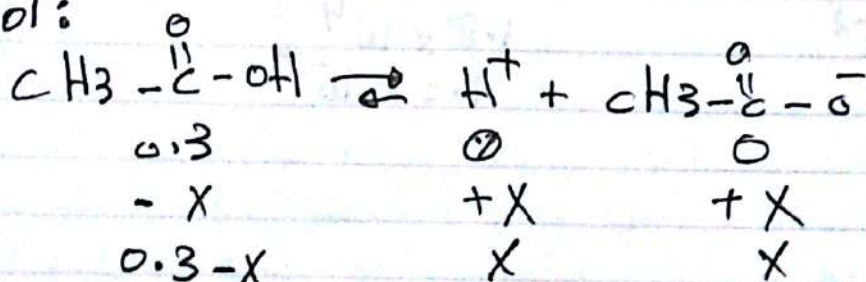 ol:
O O
CH3 - C - OH ⇌ H+ + CH3 - C - O-
0.3 0 0
- X + X + X
0.3 - X X X